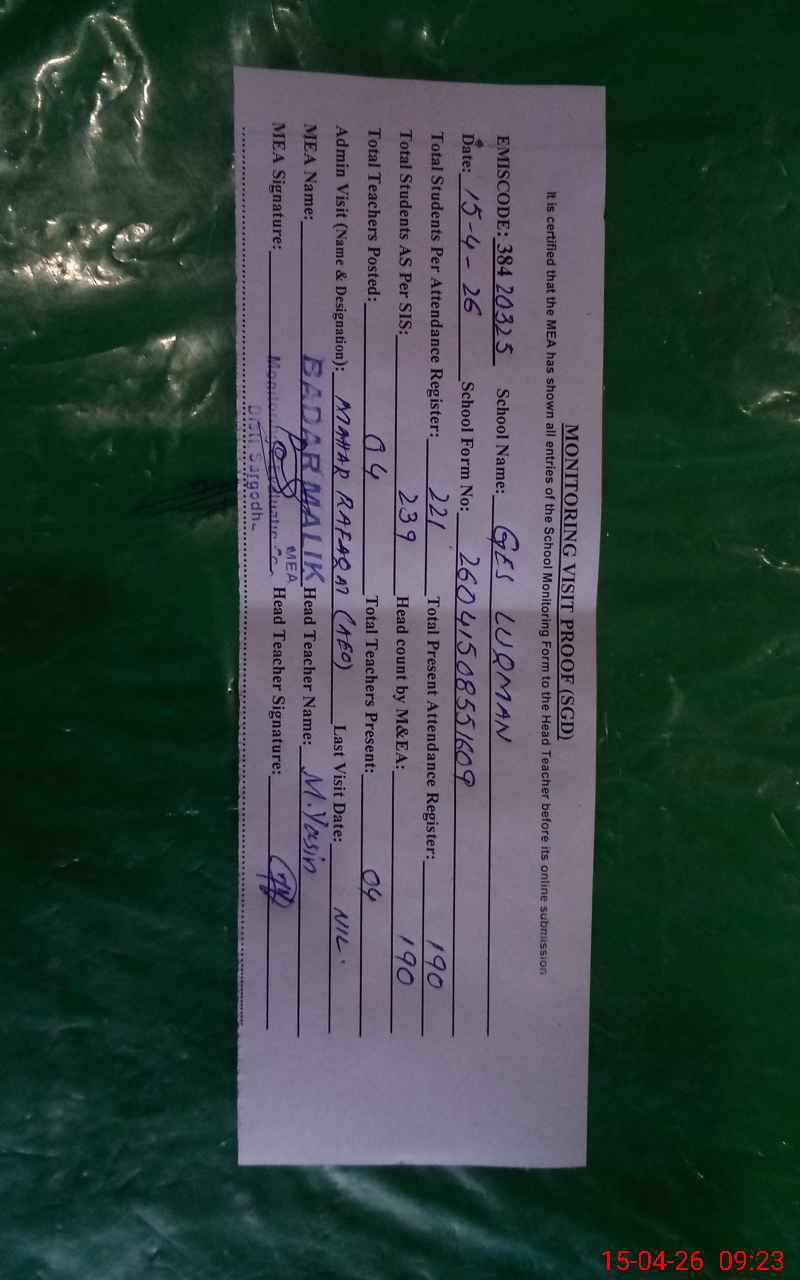 MONITORING VISIT PROOF (SGD)
It is certified that the MEA has shown all entries of the School Monitoring Form to the Head Teacher before its online submission
EMISCODE: 384 20325 School Name: GES LUQMAN
Date: 15-4-26 School Form No: 26041508551609
Total Students Per Attendance Register: 221 Total Present Attendance Register: 190
Total Students AS Per SIS: 239 Head count by M&EA: 190
Total Teachers Posted: 04 Total Teachers Present: 04
Admin Visit (Name & Designation): MAHAR RAFAQAT (AEO) Last Visit Date: NIL.
MEA Name: BADAR MALIK Head Teacher Name: M. Yasin
MEA
MEA Signature: Head Teacher Signature:
Distt Sargodha
15-04-26 09:23